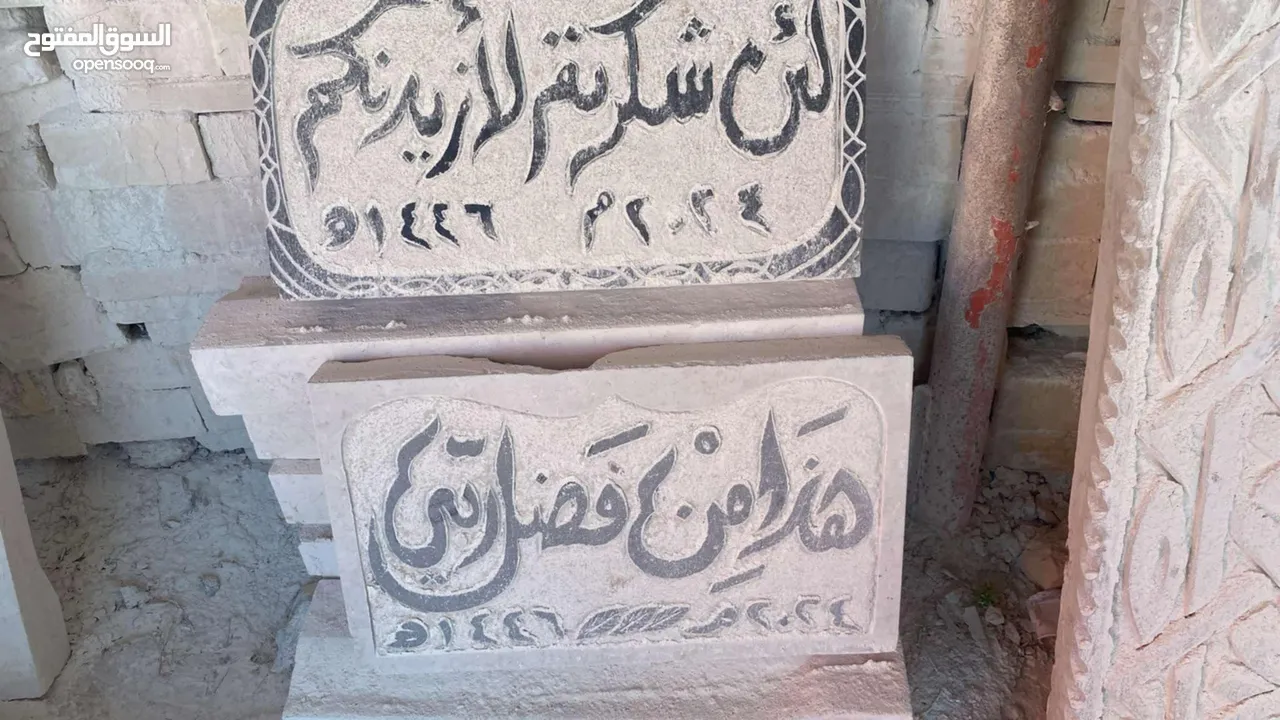 السوق المفتوح
opensooq.com
لئن شكرتم لأزيدنكم
٢٠٢٤م ١٤٤٦ه
هَذَا مِنْ فَضل ربّي
٢٠٢٤م ١٤٤٦ه